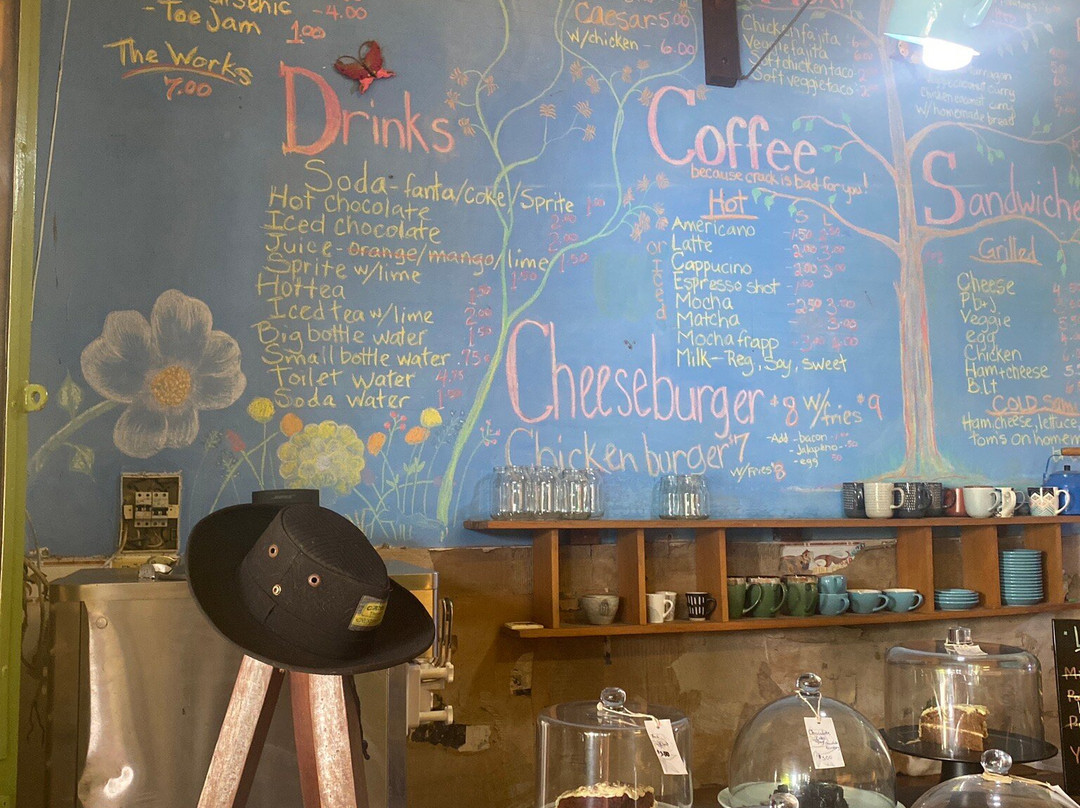 -Toe Jam 1.00
-4.00
The Works
7.00
Caesar 5.00
w/chicken - 6.00
Chicken fajita
Veggie fajita
Soft chicken taco
Soft veggie taco
chicken coconut curry
w/homemade bread
Drinks
Soda - fanta/coke/Sprite 1.00
Hot chocolate 2.00
Iced chocolate 2.00
Juice - orange/mango/lime 1.50
Sprite w/lime 1.50
Hot tea
Iced tea w/lime 2.00
Big bottle water 1.50
Small bottle water .75
Toilet water 4.75
Soda water
Coffee
because crack is bad for you!
Hot
or Iced
S L
Americano
Latte 2.00 3.00
Cappucino 2.00 3.00
Espresso shot
Mocha 2.50 3.50
Matcha
Mocha frapp
Milk - Reg, Soy, sweet
Cheeseburger $8 w/fries $9
-Add -bacon
-Jalapeño
-egg
Chicken burger $7
w/fries $8
Sandwiche
Grilled
Cheese
Pb+j
Veggie
egg
Chicken
Ham+cheese
B.L.t
COLD
Ham, cheese, lettuce
tom's on homem